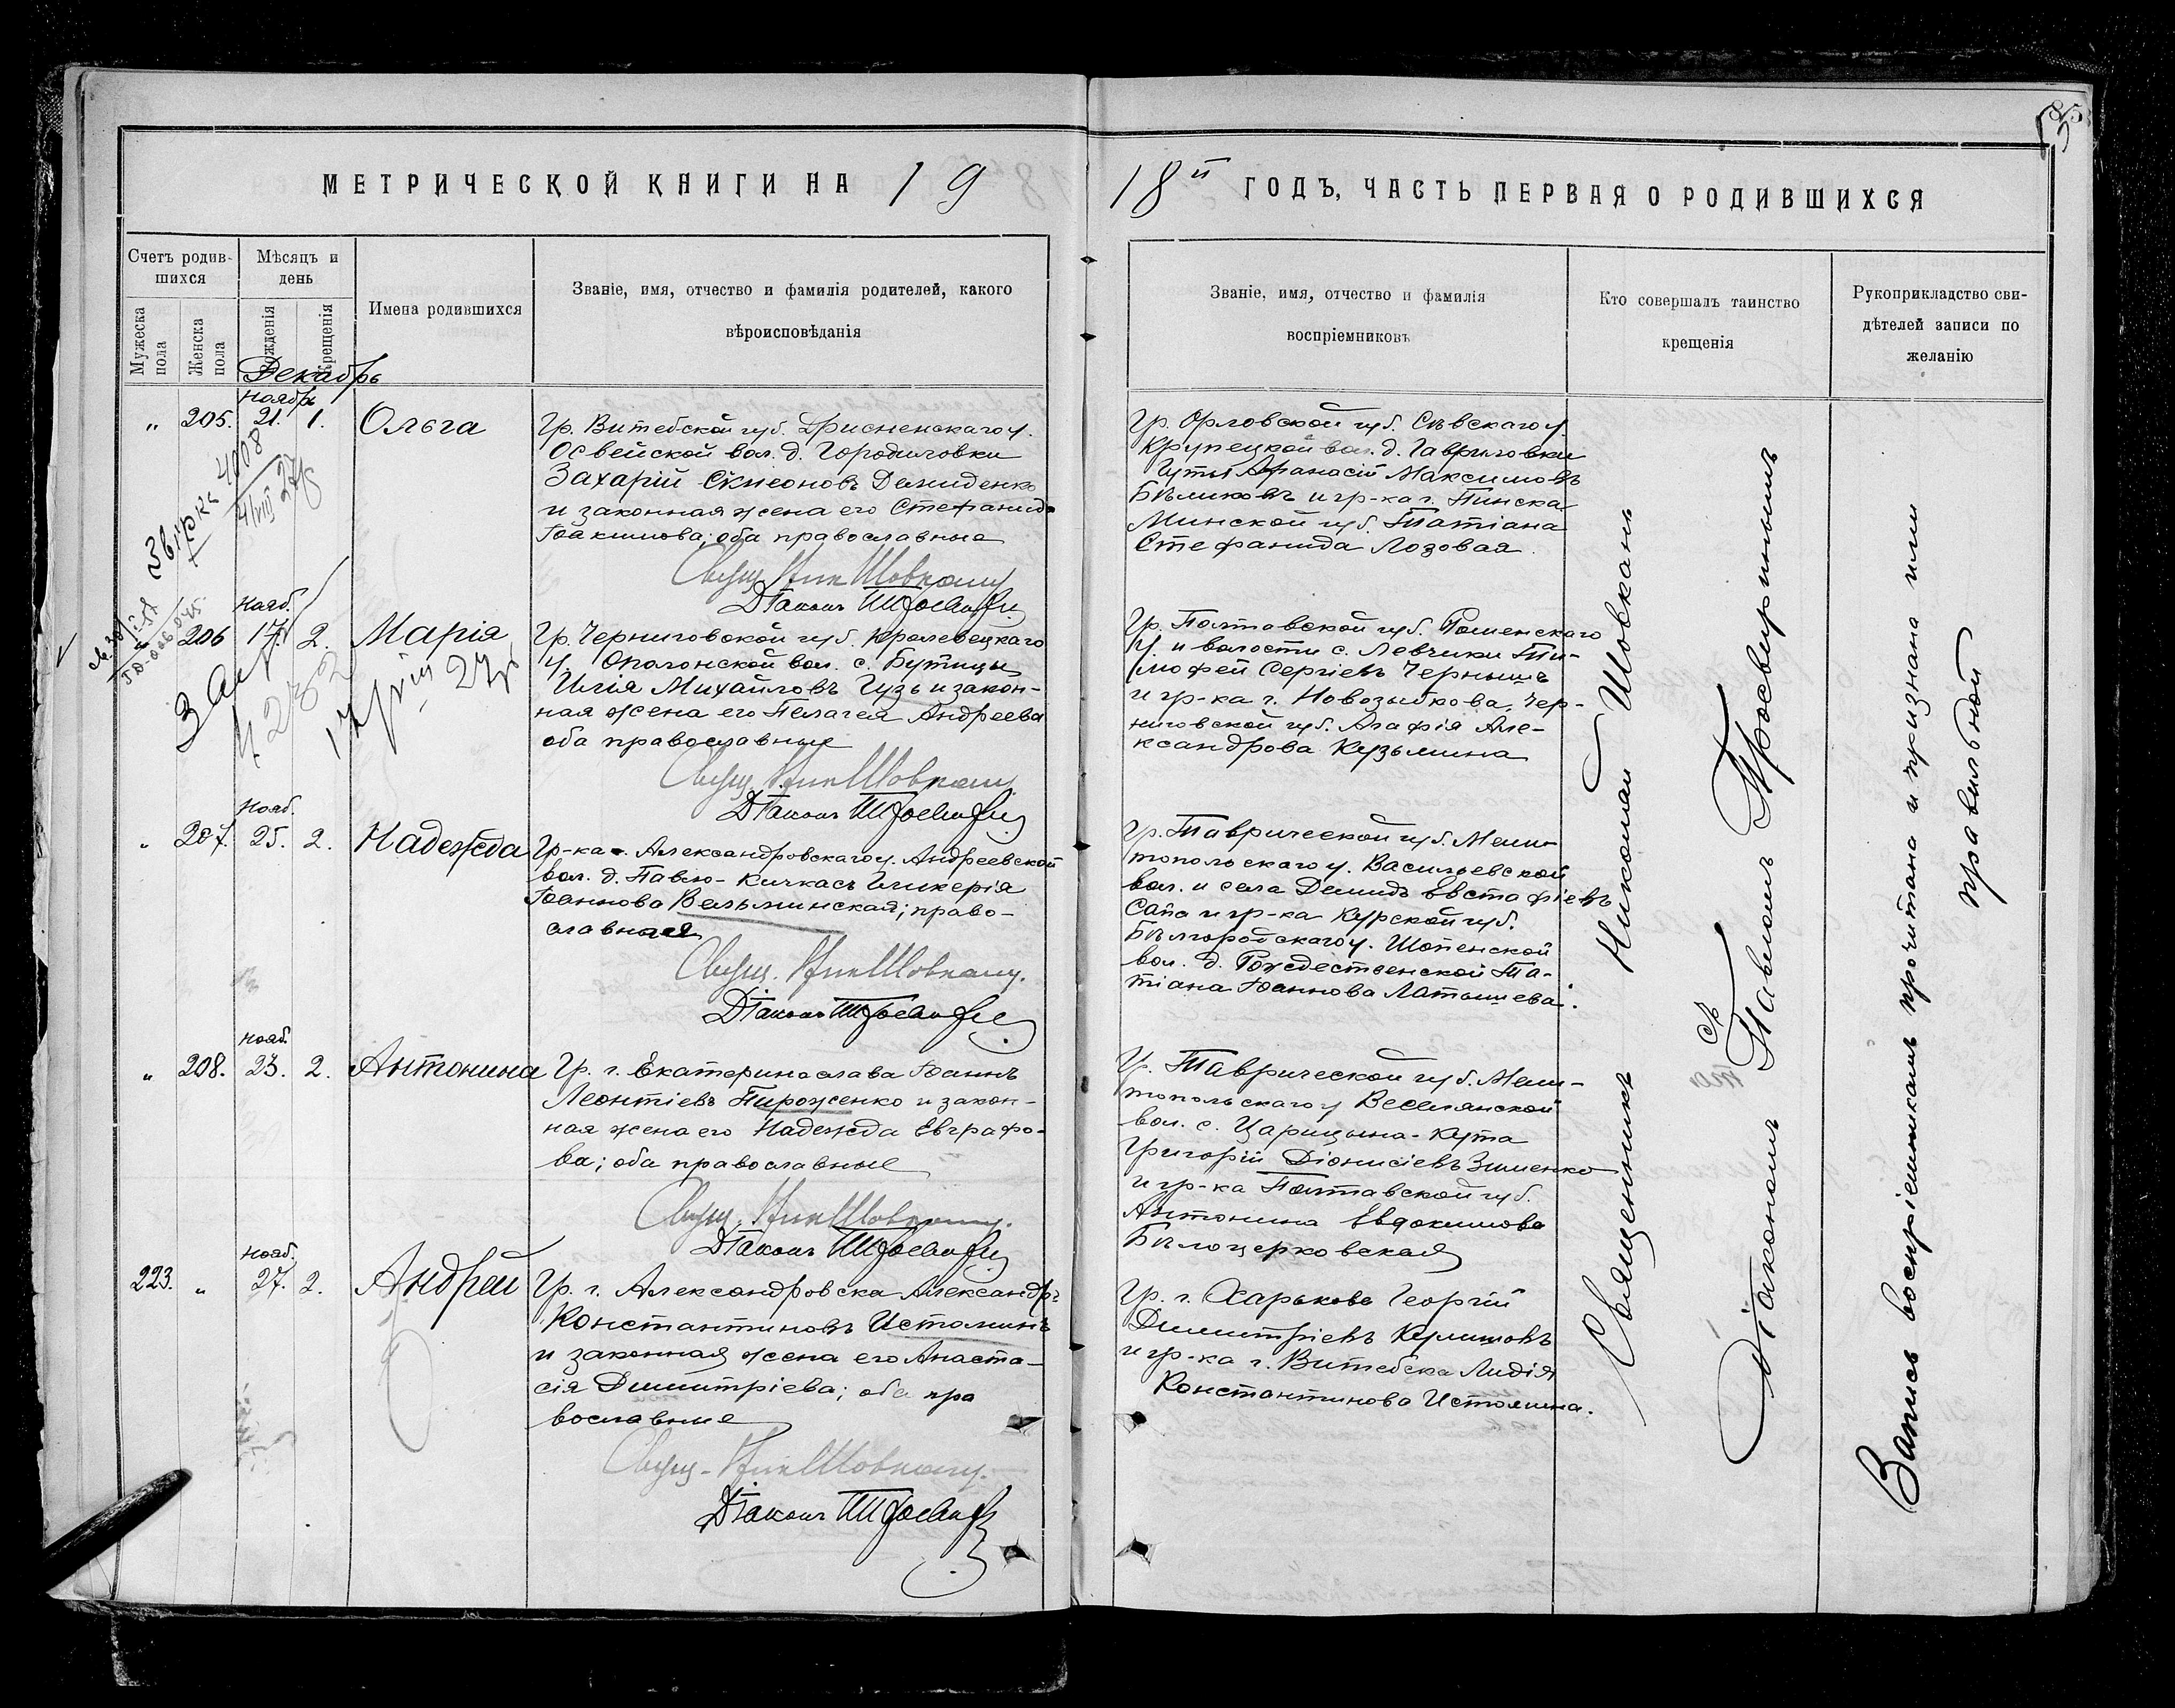 МЕТРИЧЕСКОЙ КНИГИ НА 19
18й ГОДЪ, ЧАСТЬ ПЕРВАЯ О РОДИВШИХСЯ
Счетъ родив-
шихся
Мужеска пола
Женска пола
Мѣсяцъ и
день
Рожденія
Крещенія
Имена родившихся
Званіе, имя, отчество и фамилія родителей, какого
вѣроисповѣданія
Званіе, имя, отчество и фамилія
воспріемниковъ
Кто совершалъ таинство
крещенія
Рукоприкладство сви-
дѣтелей записи по
желанію
Декабрь
Ноябрь
„ 205. 21. 1. Ольга
Гр. Витебской губ. Дрисненскаго у.
Освейской вол. д. Городиловки
Захарій Симеоновъ Демиденко
и законная жена его Стефанида
Іоакимова; оба православные
Свящ. Ник Шовкань
Діаконъ
Гр. Орловской губ. Сѣвскаго у.
Крупецкой вол. д. Гавриловки
Гуты Афанасій Максимовъ
Бѣликовъ и гр-ка г. Пинска
Минской губ. Татіана
Стефанида Лозовая.
Звірка 4008
Нояб.
206 17. 2. Марія
Гр. Черниговской губ. Кролевецкаго
у. вол. с. Бутицы
Илія Михайловъ Гузь и закон-
ная жена его Пелагея Андреева
оба православные
Свящ. Ник Шовкань
Діаконъ
Гр. Полтавской губ. Роменскаго
у. и волости с. Левчики Ти-
мофей Сергіевъ Чернышъ
и гр-ка г. Новозыбкова, Чер-
ниговской губ. Агафія Але-
ксандрова Кузьмина
Нояб.
„ 207. 25. 2. Надежда
Гр-ка Александровскаго у. Андреевской
вол. д. Павло-Кичкасъ Гликерія
Іоаннова Вальминская; право-
славная
Свящ. Ник Шовкань.
Діаконъ
Гр. Таврической губ. Мели-
топольскаго у. Васильевской
вол. и села Демидъ Евстафіевъ
Сапа и гр-ка Курской губ.
Бѣлгородскаго у. Шопенской
вол. д. Рождественской Та-
тіана Іоаннова Латышева.
Нояб.
„ 208. 23. 2. Антонина
Гр. г. Екатеринослава Іоаннъ
Леонтіевъ Пироженко и закон-
ная жена его Надежда Евграфо-
ва; оба православные
Свящ. Ник Шовкань.
Діаконъ
Гр. Таврической губ. Мели-
топольскаго у Веселянской
вол. с. Царицына-Кута
Григорій Діонисіевъ Зименко
и гр-ка Полтавской губ.
Антонина Евдокимова
Бѣлоцерковская
Нояб.
223. „ 27. 2. Андрей
Гр. г. Александровска Александръ
Константиновъ Истоминъ
и законная жена его Анаста-
сія Димитріева; оба пра
вославные
Свящ. Ник Шовкань.
Діаконъ
Гр. г. Харькова Георгій
Димитріевъ Кулишовъ
и гр-ка г. Витебска Лидія
Константинова Истомина.
Священникъ Николай Шовкань
съ
Діакономъ Павломъ Просвирнинымъ
Запись воспріемникамъ прочитана и признана ими
правильной